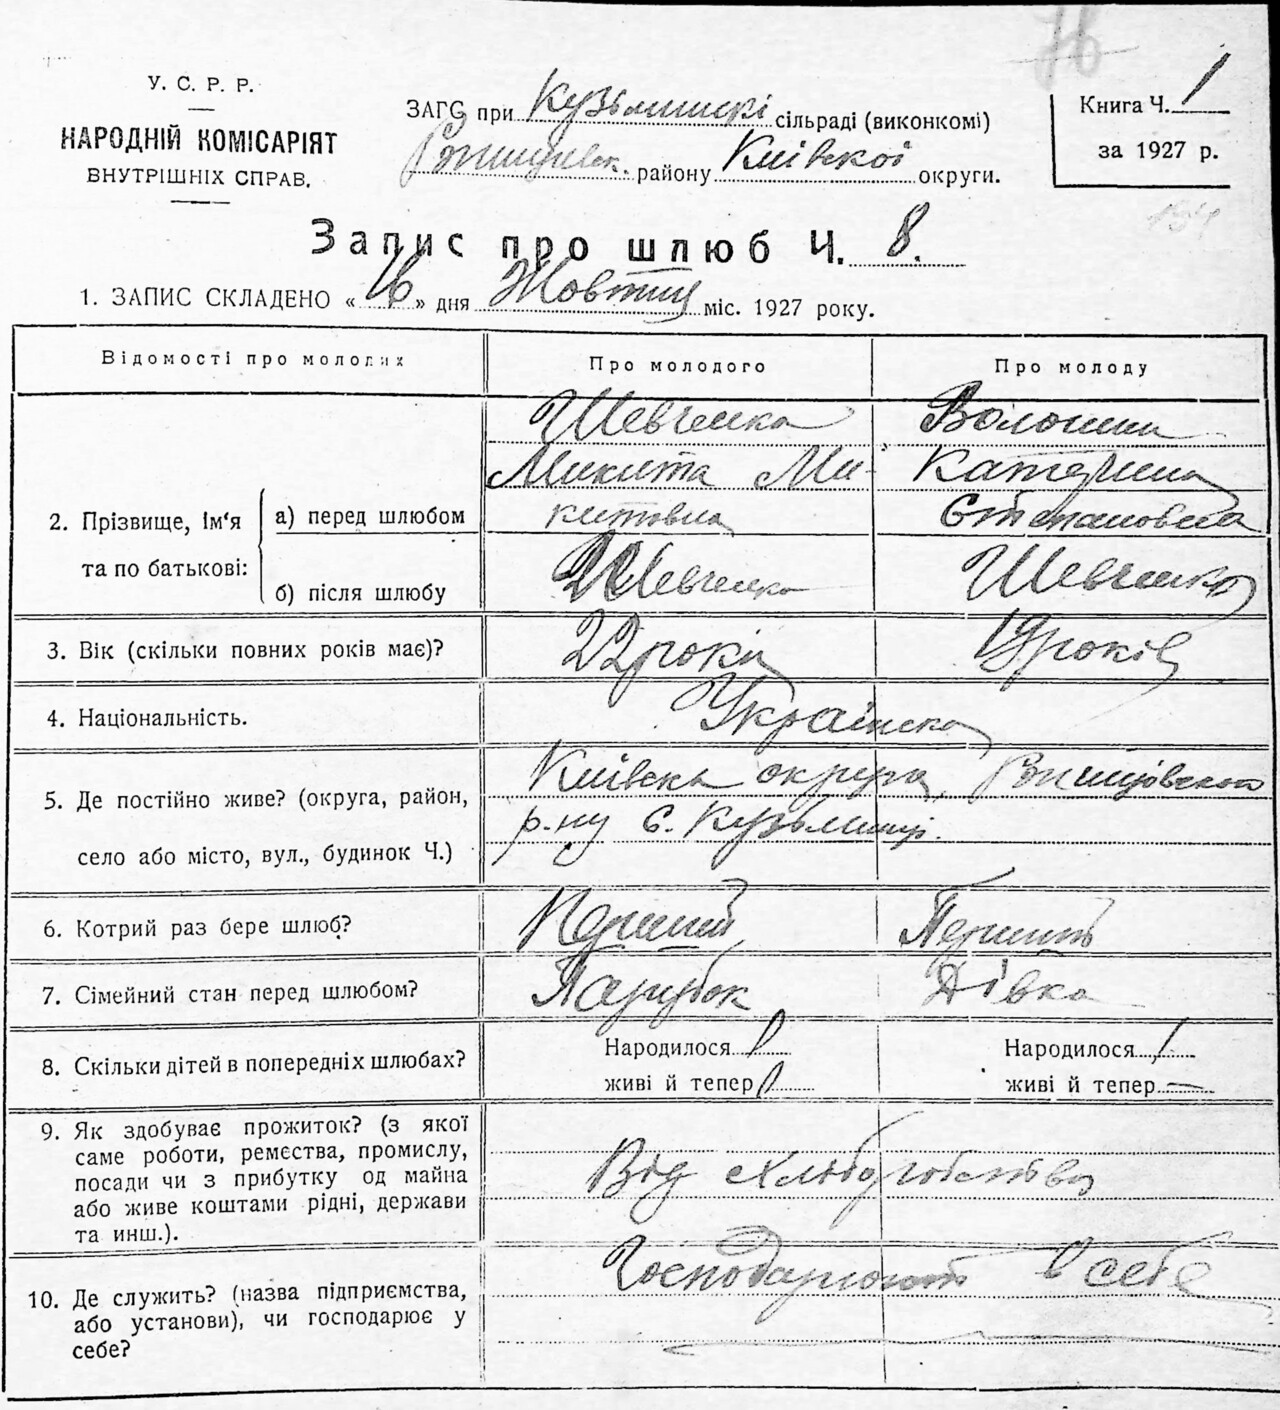 У. С. Р. Р.
НАРОДНІЙ КОМІСАРІЯТ
ВНУТРІШНІХ СПРАВ.
ЗАГС при Кузьминскі сільраді (виконкомі)
району Київскої округи.
Книга Ч. 1
за 1927 р.
Запис про шлюб Ч. 8.
1. ЗАПИС СКЛАДЕНО « 16 » дня Жовтня міс. 1927 року.
Відомості про молодих
Про молодого
Про молоду
2. Прізвище, ім‘я та по батькові:
а) перед шлюбом
Шевченка
Микита Ми-
китовна
Волошина
Катерина
Степановна
б) після шлюбу
Шевченка
Шевченко
3. Вік (скільки повних років має)?
22 роки
19 років
4. Національність.
Українска
5. Де постійно живе? (округа, район,
село або місто, вул., будинок Ч.)
Київска округа,
р-ну с. Кузьминці.
6. Котрий раз бере шлюб?
Перший
Перший
7. Сімейний стан перед шлюбом?
Парубок
Дівка
8. Скільки дітей в попередніх шлюбах?
Народилося
живі й тепер
Народилося
живі й тепер —
9. Як здобуває прожиток? (з якої
саме роботи, ремества, промислу,
посади чи з прибутку од майна
або живе коштами рідні, держави
та инш.).
Від хліборобства
10. Де служить? (назва підприємства,
або установи), чи господарює у
себе?
Господарюють в себе